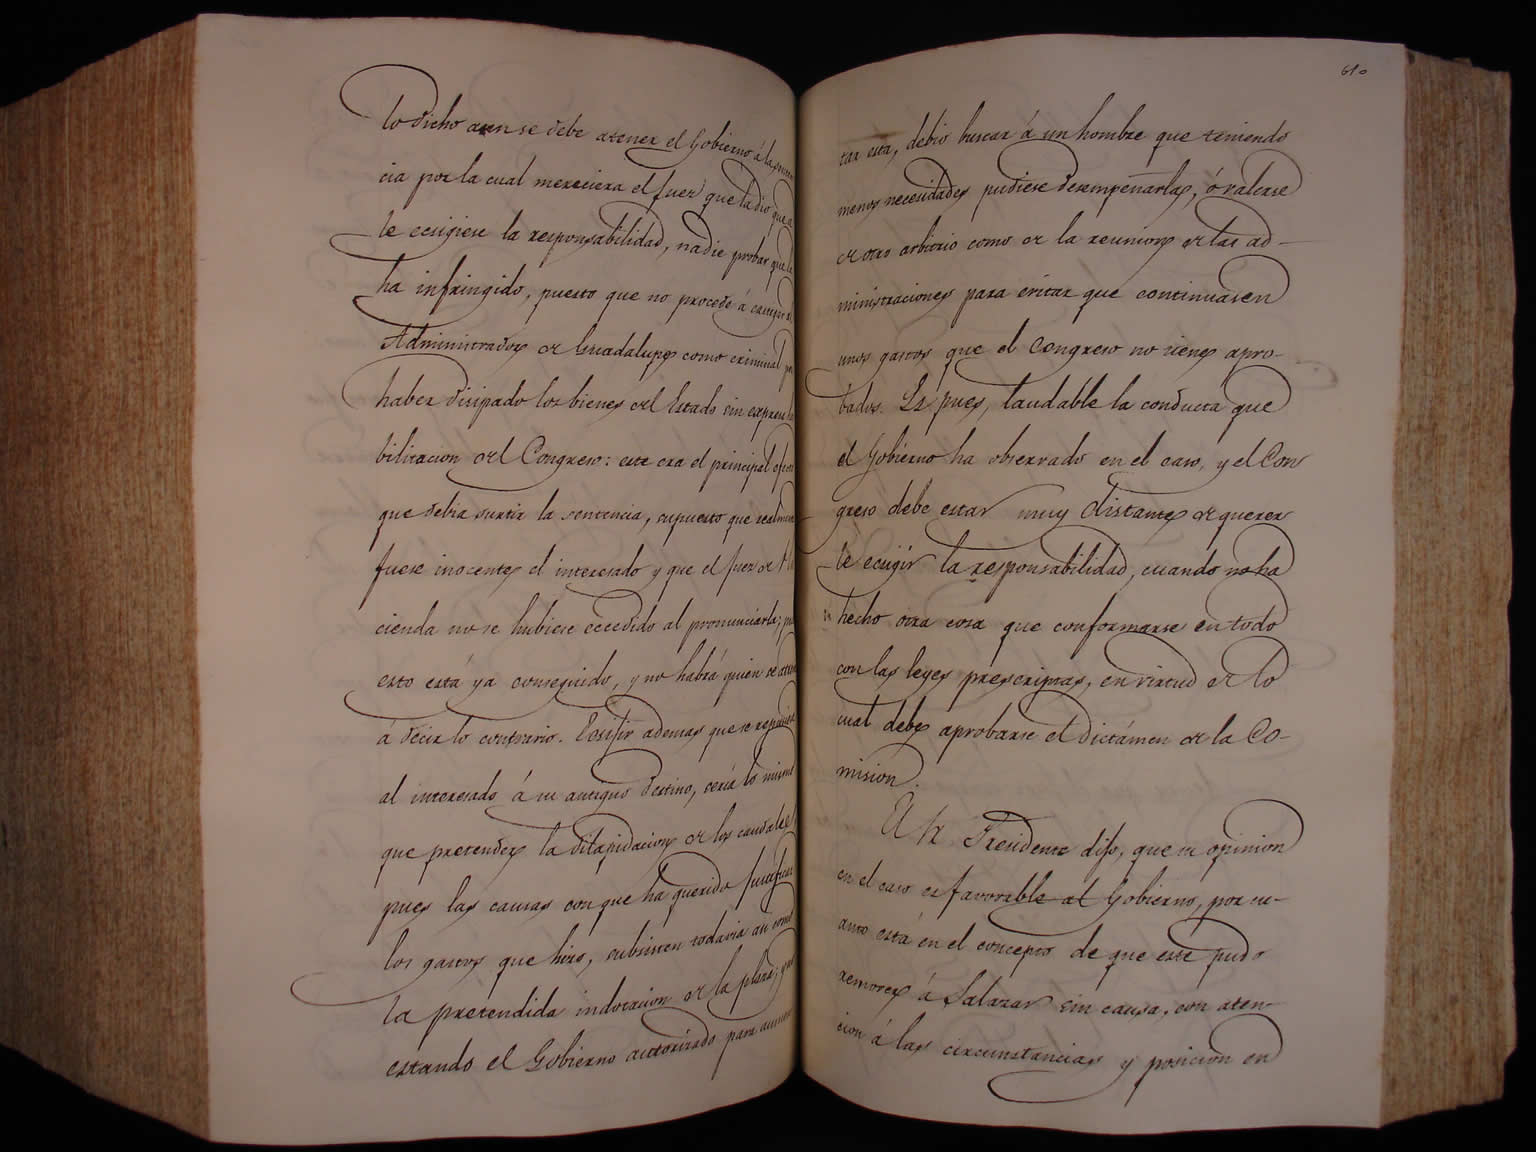 lo dicho aun se debe atener el Gobierno á la senten
cia por la cual mereciera el Juez que la dio que se
le ecsigiese la responsabilidad, nadie probar que la
ha infringido, puesto que no procede á castigar al
Administrador de Guadalupe como criminal por
haber disipado los bienes del Estado sin expresa ha
bilitacion del Congreso: este era el principal efecto
que debia surtir la sentencia, supuesto que realmente
fuese inocente el interesado y que el Juez de Ha
cienda no se hubiese eccedido al pronunciarla; pues
esto está ya conseguido, y no habrá quien se atreva
á decir lo contrario. Ecsijir ademas que se repusiese
al interesado á su antiguo destino, sería lo mismo
que pretender la dilapidacion de los caudales
pues las causas con que ha querido justificar
los gastos que hizo, subsisten todavia asi como
la pretendida indotacion de la plaza; y no
estando el Gobierno autorizado para aumen
610
tar esta, debió buscar á un hombre que teniendo
menos necesidades pudiese desempeñarla, ó valerse
de otro arbitrio como de la reunion de las ad-
ministraciones para evitar que continuasen
unos gastos que el Congreso no tiene apro-
bados. Es pues, laudable la conducta que
el Gobierno ha observado en el caso, y el Con
greso debe estar muy distante de querer
le ecsigir la responsabilidad, cuando no ha
hecho otra cosa que conformarse en todo
con las leyes prescriptas, en virtud de lo
cual debe aprobarse el dictámen de la Co-
mision.
El Sr. Presidente dijo, que su opinion
en el caso es favorable al Gobierno, por cu-
anto está en el concepto de que este pudo
remover á Salazar sin causa, con aten-
cion á las circunstancias y posicion en